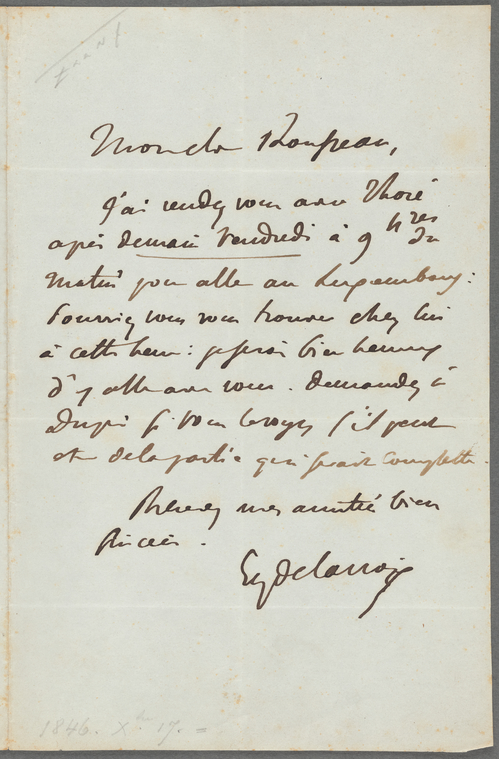 Mon cher Rousseau,
J'ai rendez vous avec Thoré
après demain Vendredi à 9 hres du
matin pour aller au Luxembourg:
Pourriez vous vous trouver chez lui
à cette heure: je serai bien heureux
d'y aller avec vous. Demandez à
Dupré si vous le voyez s'il peut
être de la partie qui serait complette.
Recevez mes amitiés bien
sincères.
Eug Delacroix
1846. Xbre 17. =